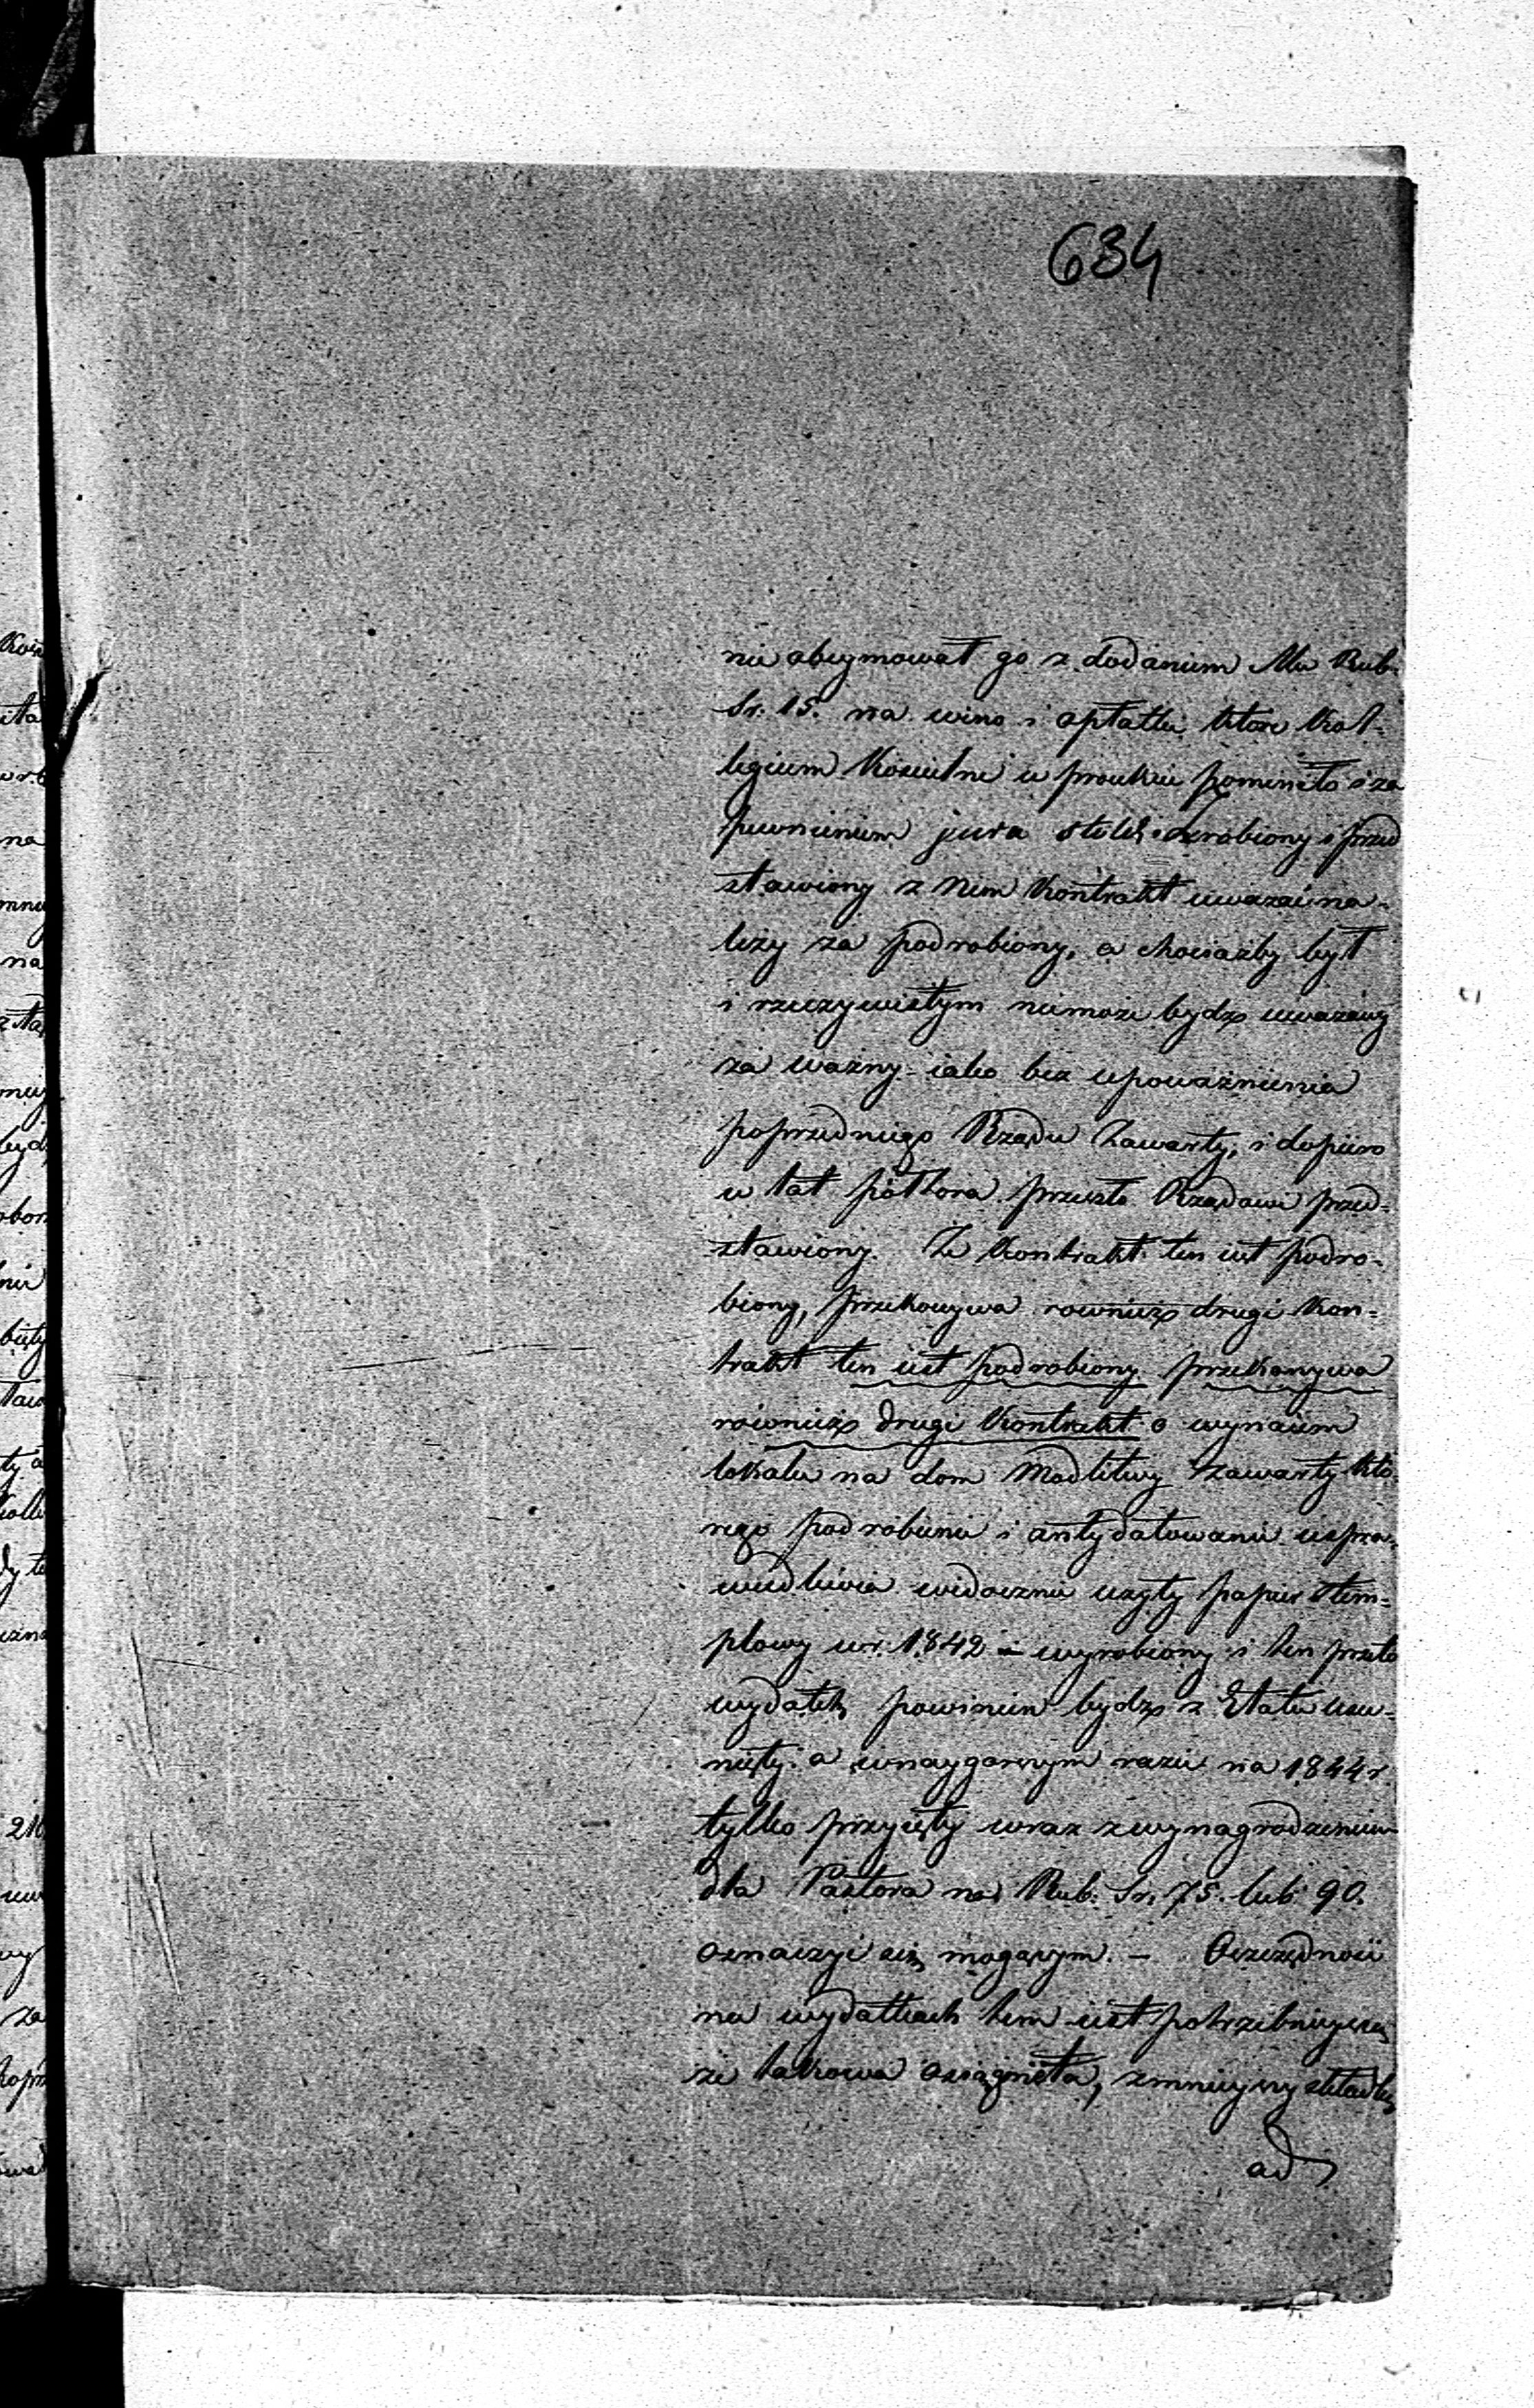 634
nie obeymował go z dodaniem Mu Rub.
Sr. 15. na wino i opłatki które Kol-
legium Kościelne w proiekcie pominęło i za
pewnieniem jura stole zrobiony i przed
stawiony z Nim Kontrakt uważać na-
leży za podrobiony, a chociażby był
i rzeczywistym niemoże bydź uważany
za ważny iako bez upoważnienia
poprzedniego Rządu Zawarty, i dopiero
w lat półtora przeszło Rządowi przed-
stawiony. Że Kontrakt ten iest podro-
biony, przekonywa rownież drugi Kon-
trakt ten iest podrobiony przekonywa
rownież drugi Kontrakt o wynaiem
lokalu na dom Modlitwy zawarty któ
rego podrobienie i antydatowanie uspra-
wiedliwia widocznie użyty papier stem-
plowy w r. 1842 wyrobiony i ten przeto
wydatek powinien bydź z Etatu usu-
nięty a wnaygorszym razie na 1844 r.
tylko przyięty wraz z wynagrodzeniem
dla Pastora na Rub. Sr. 75. lub 90.
oznaczyć się mogącym. — Oszczędność
na wydatkach tem iest potrzebnieyszą
że takowa osiągnięta, zmnieyszy składkę
ad